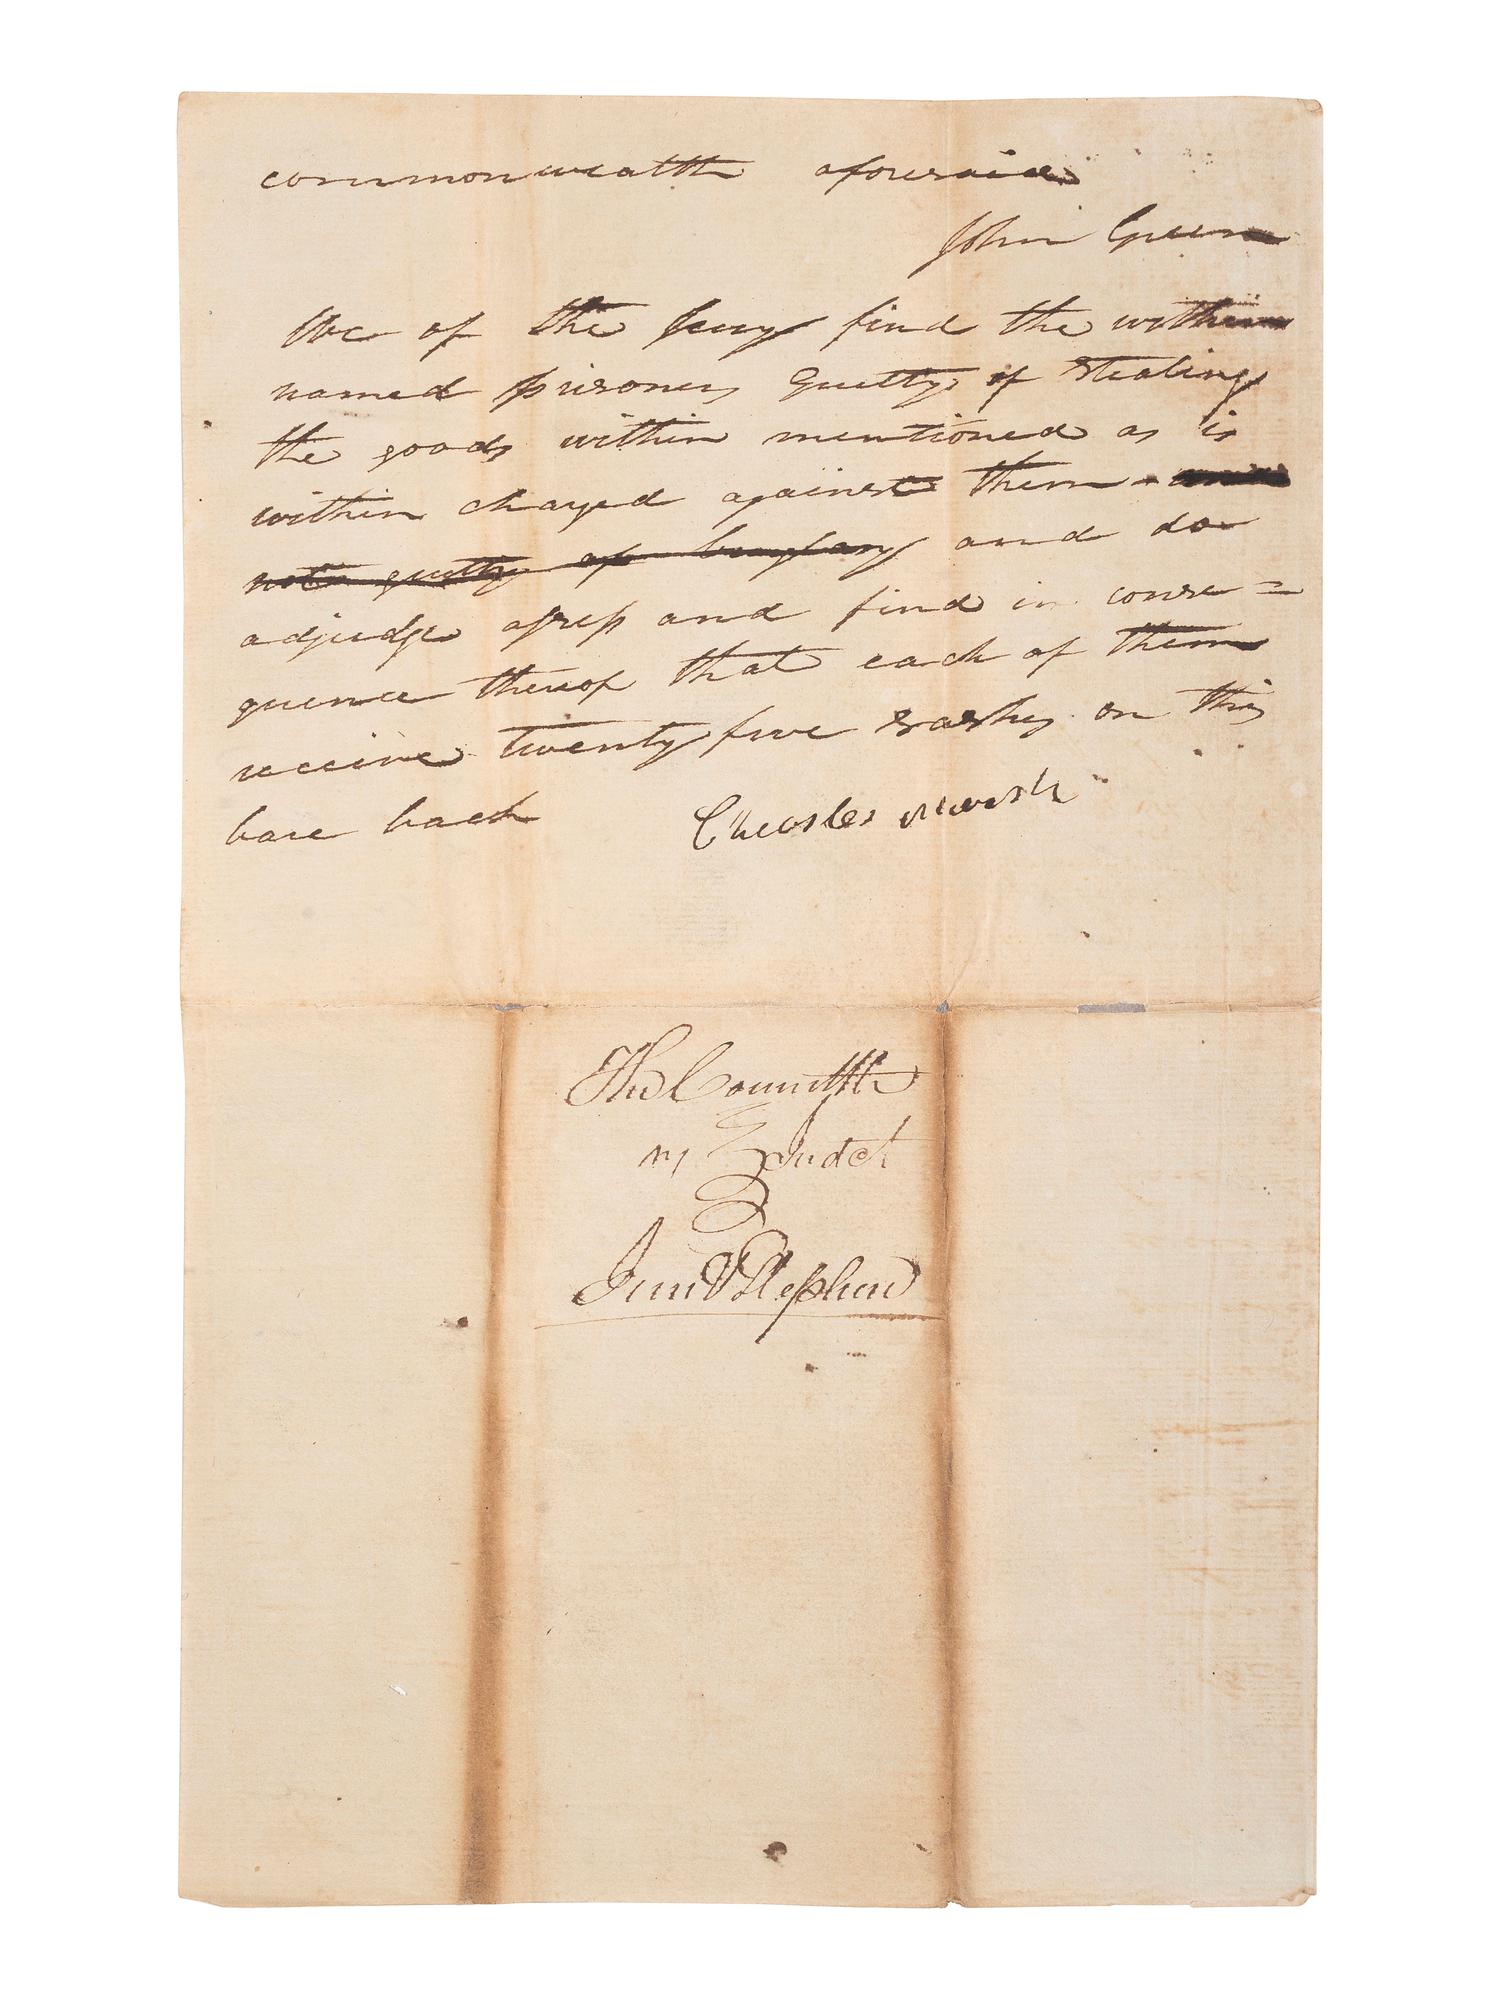 commonwealth aforesaid
John Green
We of the Jury find the within
named prisoners Guilty of Stealing
the goods within mentioned as is
within charged against them - and
not guilty of burglary and do
adjudge assess and find in conse=
quence thereof that each of them
receive twenty five lashes on their
bare back Charles Marsh
The Comwlth
vs Indct
Jim & Stephen